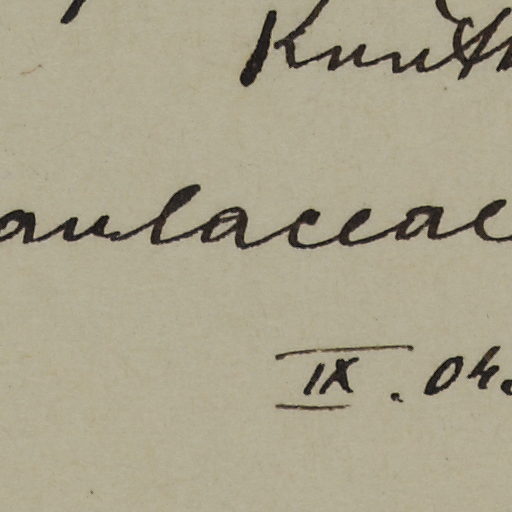 Kunth
aulaceae
IX. 04.